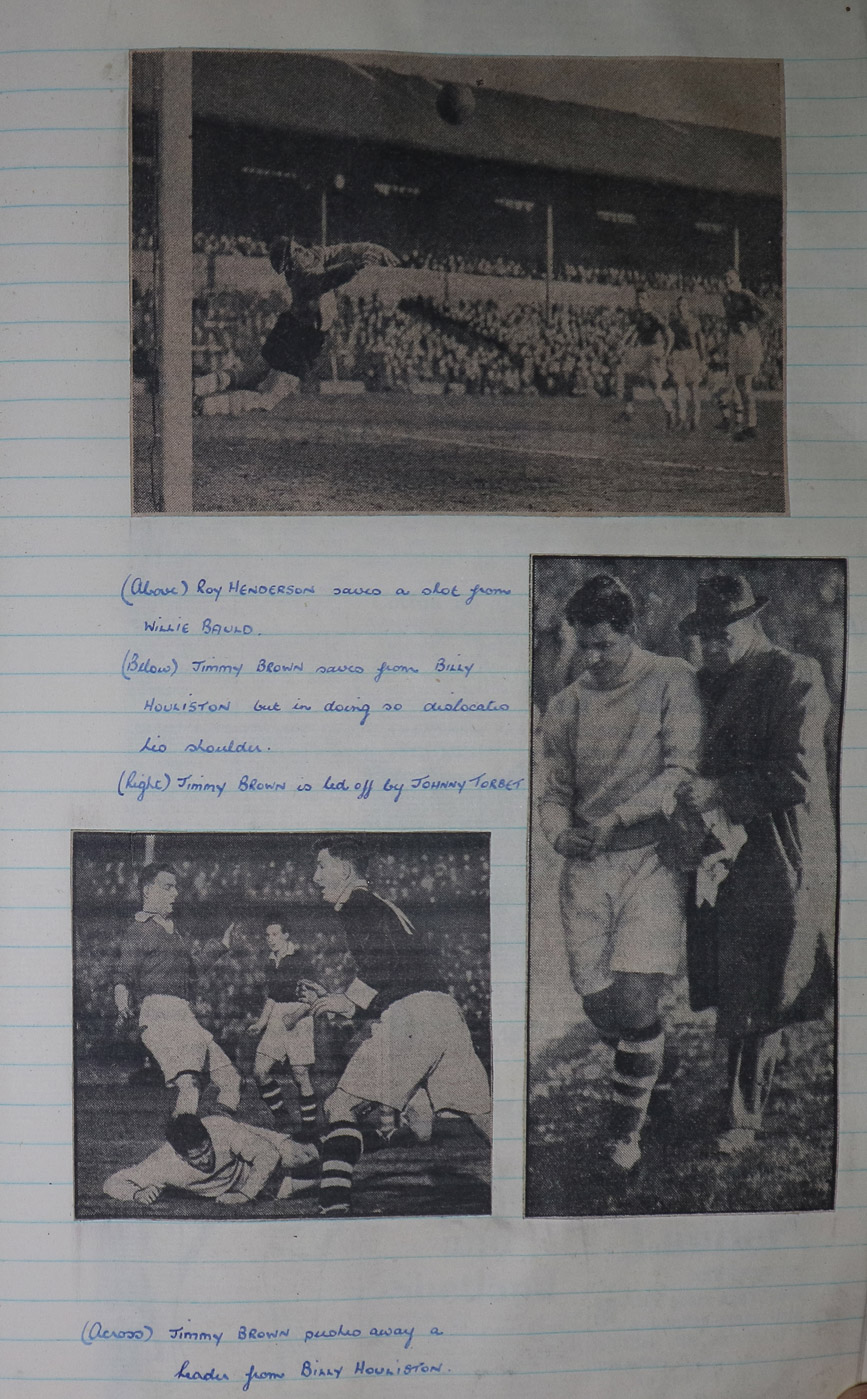 (Above) ROY HENDERSON saves a shot from
WILLIE BAULD.
(Below) JIMMY BROWN saves from BILLY
HOULISTON but in doing so dislocates
his shoulder.
(Right) JIMMY BROWN is led off by JOHNNY TORBET
(Across) JIMMY BROWN pushes away a
header from BILLY HOULISTON.